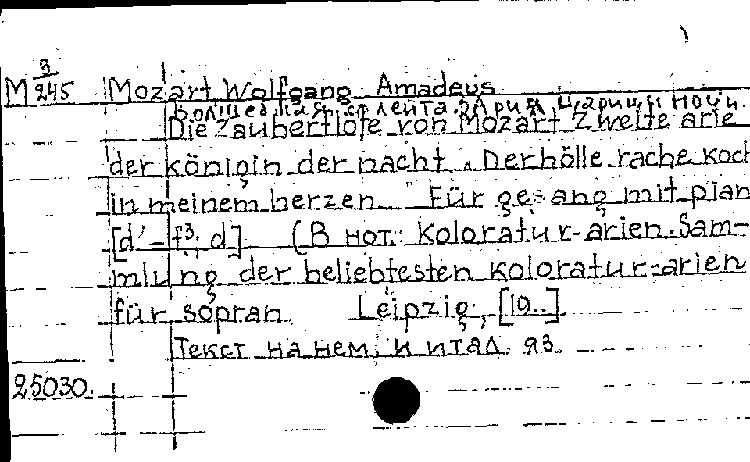 М 3/245 Mozart Wolfgang Amadeus
Волшебная флейта. Ария царицы ночи.
Die Zauberflöte von Mozart Zweite arie
der königin der nacht „Der hölle rache koch
in meinem herzen" Für gesang mit pian
[d' – f3, d] (В нот.: Koloratur-arien. Sam-
mlung der beliebtesten Koloratur-arien
für sopran. Leipzig, [19..].
Текст на нем. и итал. яз.
25030.